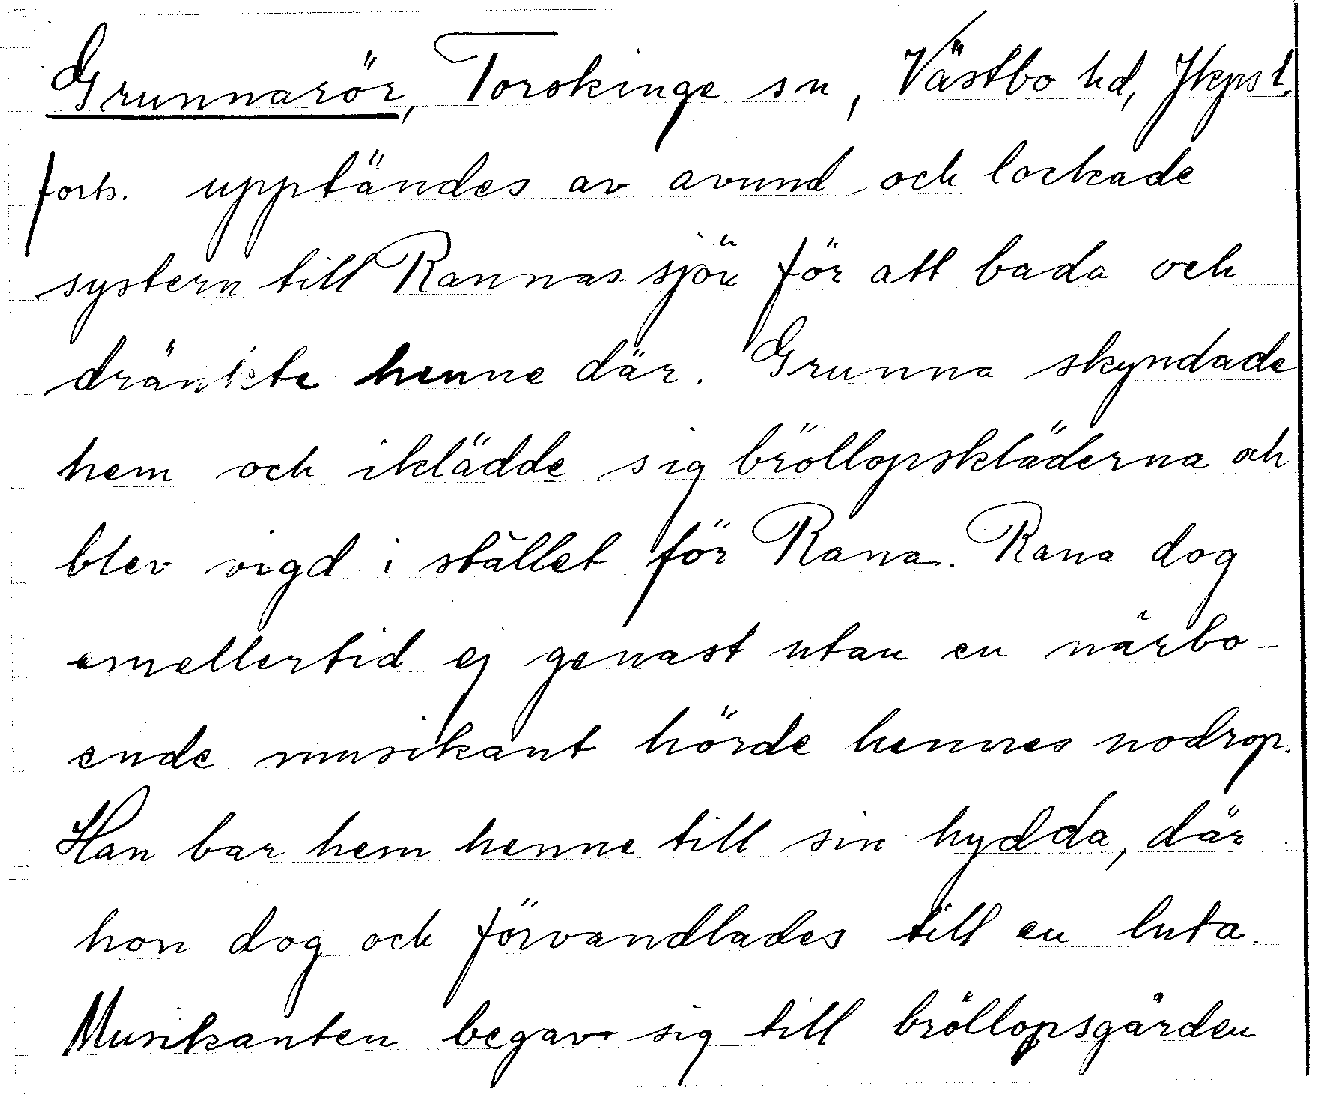 Grunnarör, Torskinge sn, Västbo hd, Jkps l.
forts. upptändes av avund och lockade
systern till Rannas sjön för att bada och
dränkte henne där. Grunna skyndade
hem och iklädde sig bröllopskläderna och
blev vigd i stället för Rana. Rana dog
emellertid ej genast utan en närbo-
ende musikant hörde hennes nödrop.
Han bar hem henne till sin hydda, där
hon dog och förvandlades till en luta.
Musikanten begav sig till bröllopsgården